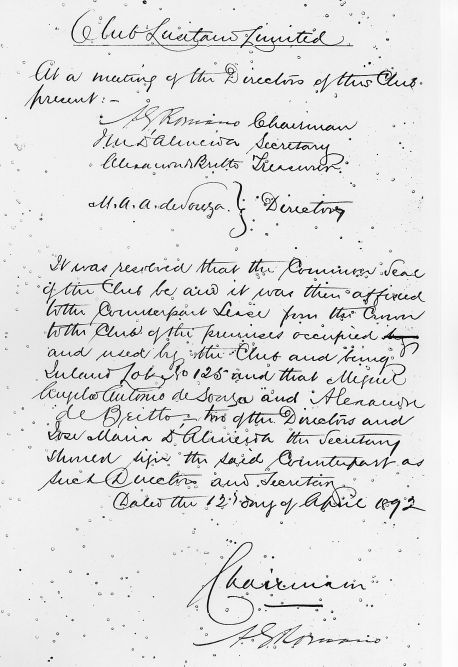 Club Lusitano Limited
At a meeting of the Directors of this Club
present:-
A G Romano Chairman
J M D'Almeida Secretary
Alexandre Britto Treasurer
M. A. A. de Souza } Directors
It was resolved that the Common Seal
of the Club be and it was then affixed
to the Counterpart Lease from the Crown
to the Club of the premises occupied
and used by the Club and being
Inland Lot No 125 and that Miguel
Angelo Antonio de Souza and Alexandre
de Britto - two of the Directors and
Jose Maria D'Almeida the Secretary
should sign the said Counterpart as
such Directors and Secretary
Dated the 12th day of April 1892
Chairman
A. G. Romano